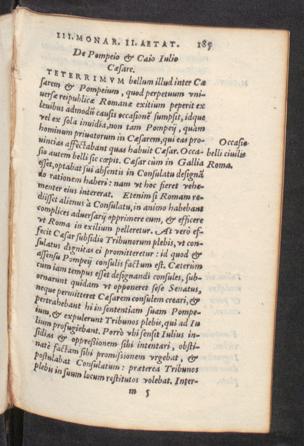 III. MONAR. II. AETAT. 185
De Pompeio & Caio Iulio
Cæsare.
TETERRIMVM bellum illud inter Cæ
sarem & Pompeium, quod perpetuum vni-
uersæ reipublicæ Romanæ exitium peperit ex
leuibus admodũ causis occasionẽ sumpsit, idque
vel ex sola inuidia, non tam Pompeij, quàm
hominum priuatorum in Cæsarem, qui eas pro-
uincias affectabant quas habuit Cæsar. Occa-
sio autem belli sic cœpit. Cæsar cùm in Gallia
esset, optabat sui absentis in Consulatu designã
do rationem haberi: nam vt hoc fieret vehe-
menter eius intererat. Etenim si Romam re-
diisset alienus à Consulatu, in animo habebant
complices aduersarij opprimere eum, & efficere
vt Roma in exilium pelleretur. At verò ef-
fecit Cæsar subsidio Tribunorum plebis, vt con-
sulatus dignitas ei promitteretur: id quod &
assensu Pompeij consulis factum est. Cæterùm
cum iam tempus esset designandi consules, sub-
ornarunt quidam vt opponeret sese Senatus,
neque permitteret Cæsarem consulem creari, &
pertrahebant hi in sententiam suam Pompe-
ium, & expulerunt Tribunos plebis, qui ad Iu
lium profugiebant. Porrò vbi sensit Iulius in-
sidias & oppressionem sibi intentari, obsti-
natè factam sibi promissionem vrgebat, &
postulabat Consulatum: præterea Tribunos
plebis in suum locum restitutos volebat. Inter-
m 5
Occasio
belli ciuilis
Romæ.